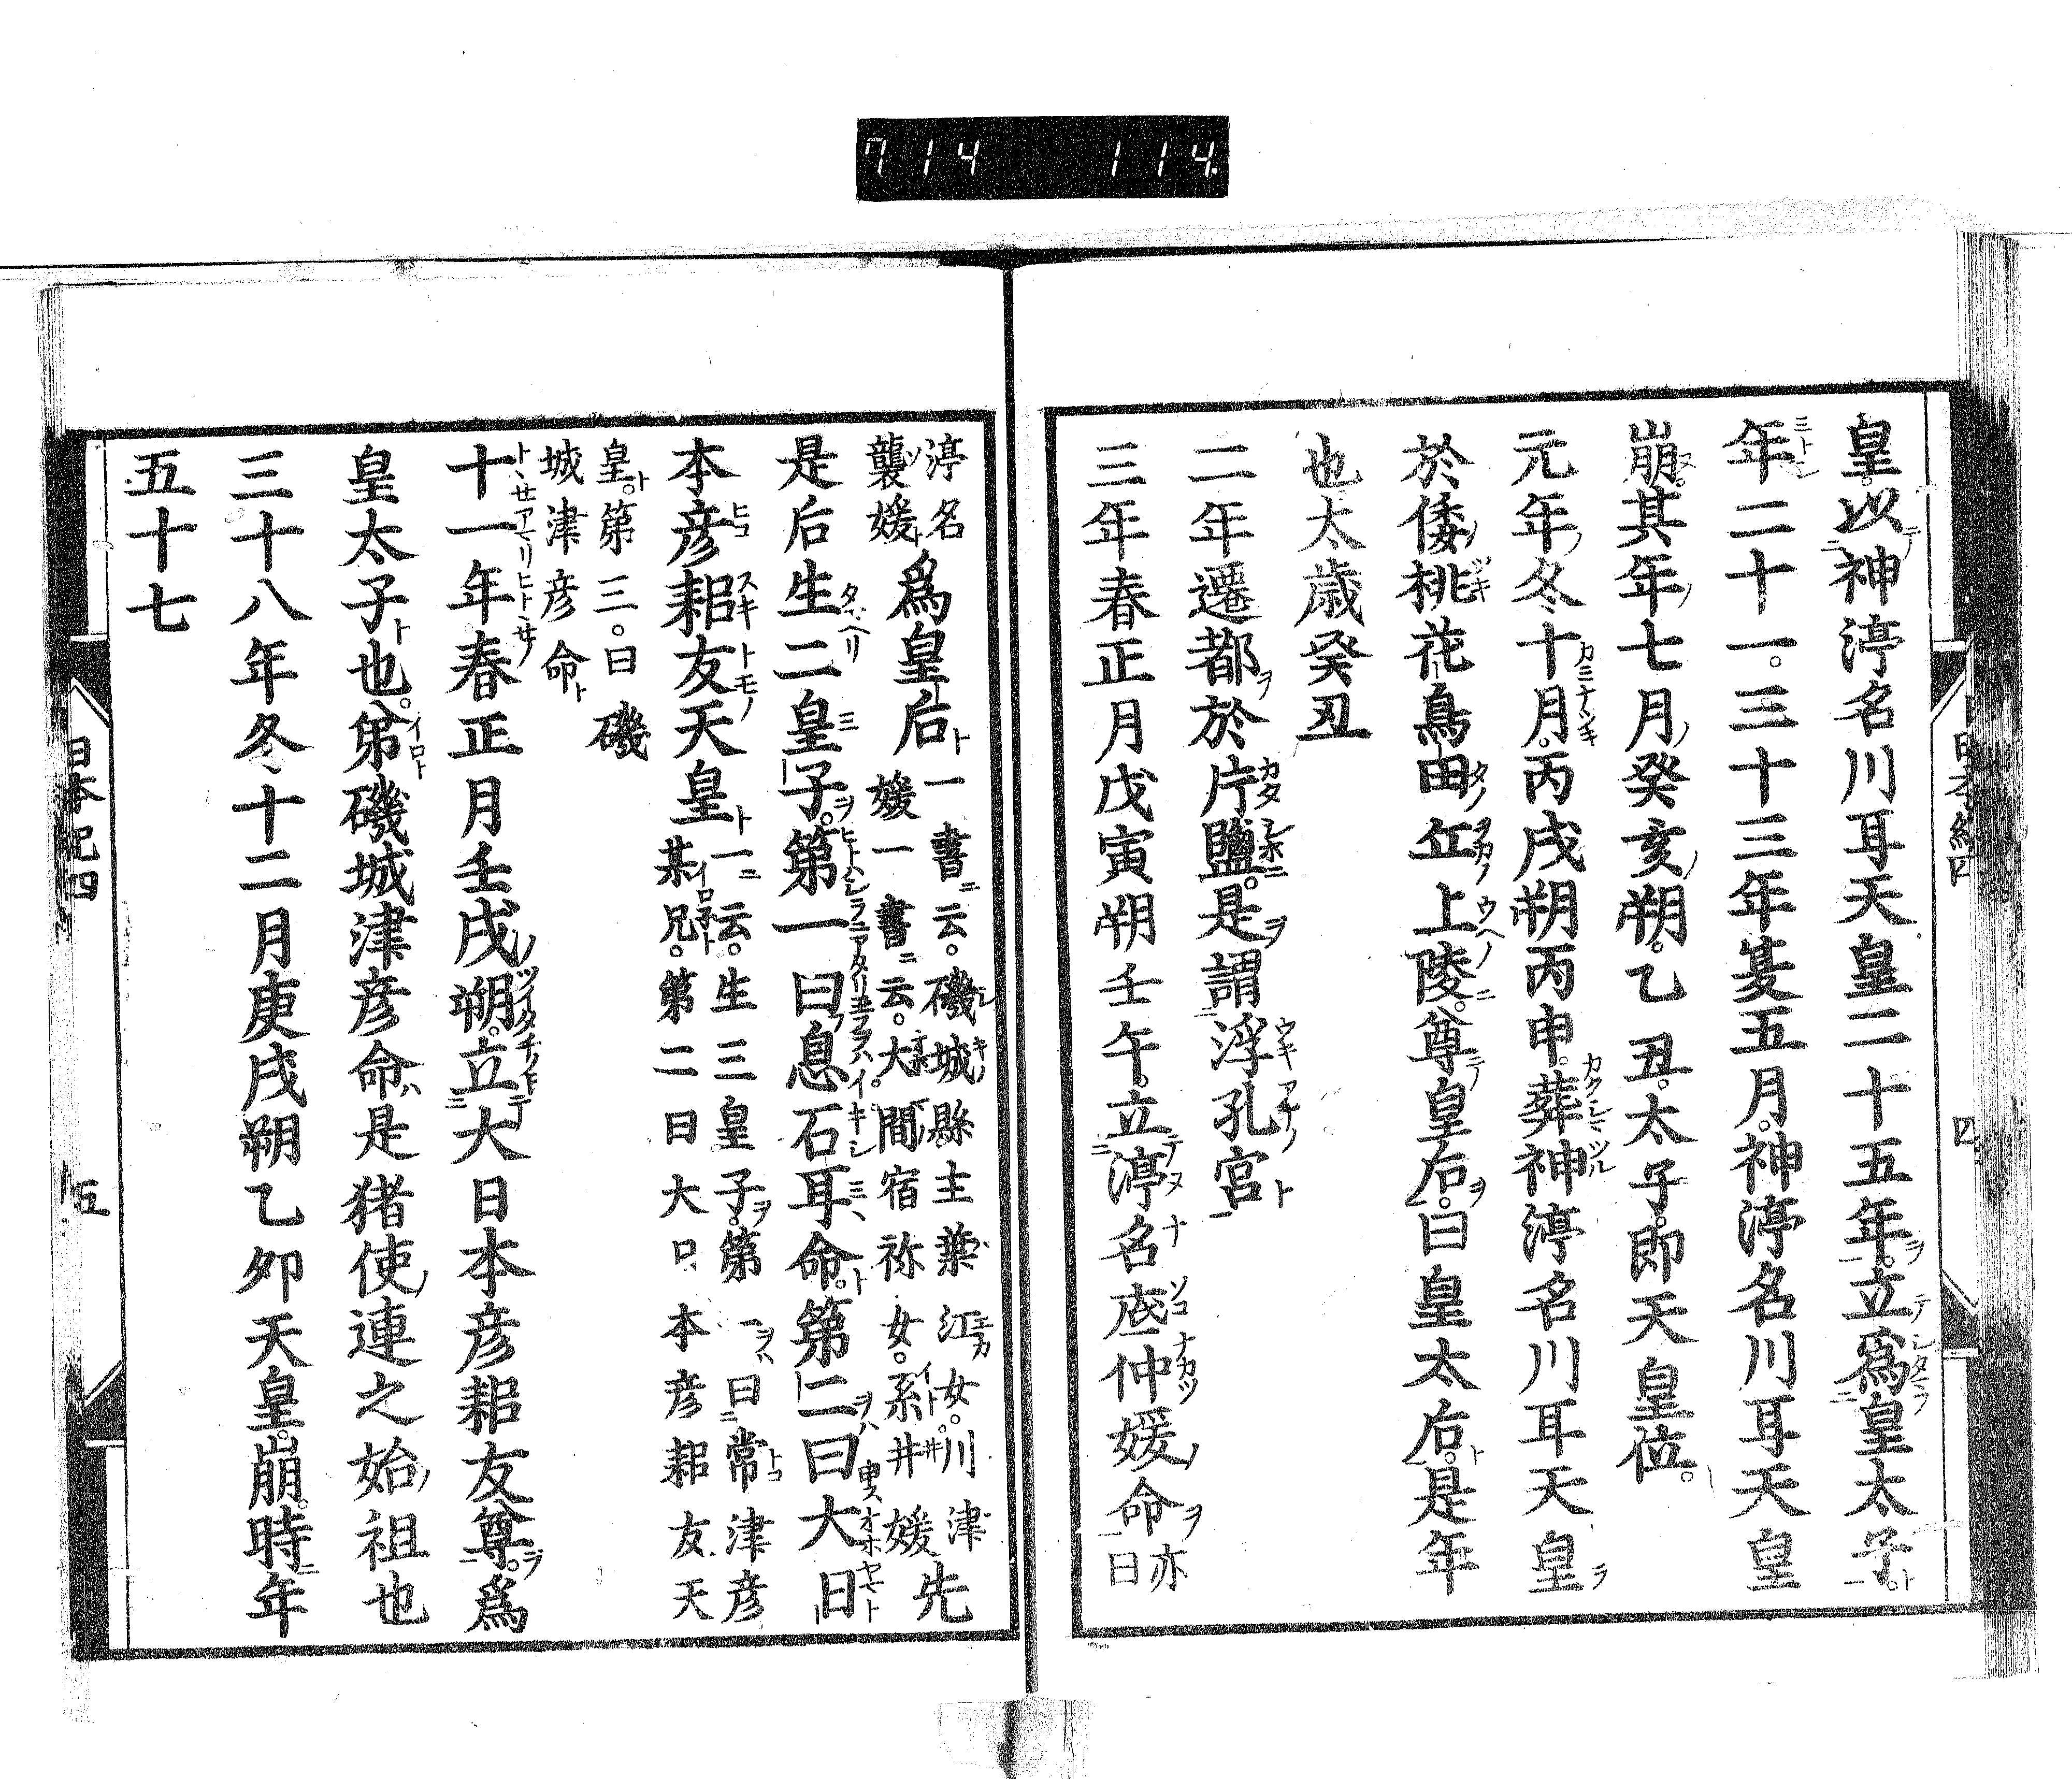 7 14 114.
皇。以神渟名川耳天皇二十五年。立爲皇太子。
年二十一。三十三年夏五月。神渟名川耳天皇
崩。其年七月癸亥朔。乙丑。太子。即天皇位。
元年冬十月。丙戌朔丙申。葬神渟名川耳天皇
於倭桃花鳥田丘上陵。尊皇后。曰皇太后。是年
也太歳癸丑
二年遷都於片鹽。是謂浮孔宮
三年春正月戊寅朔壬午。立渟名底仲媛命亦曰
渟名襲媛爲皇后一書云。磯城縣主葉江女。川津媛一書云。大間宿祢女。糸井媛先
是后生二皇子。第一曰息石耳命。第二曰大日
本彦耜友天皇一云。生三皇子。第一曰常津彦某兄。第二曰大日本彦耜友天
皇。第三。曰磯城津彦命
十一年春正月壬戌朔。立大日本彦耜友尊。爲
皇太子也。弟磯城津彦命是猪使連之始祖也
三十八年冬十二月庚戌朔乙卯天皇。崩。時年
五十七
日本紀四
五